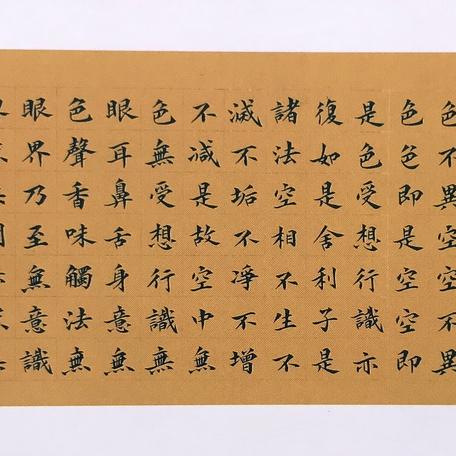 色不異空空不異
色色即是空空即
是色受想行識亦
復如是舍利子是
諸法空相不生不
滅不垢不淨不增
不減是故空中無
色無受想行識無
眼耳鼻舌身意無
色聲香味觸法無
眼界乃至無意識